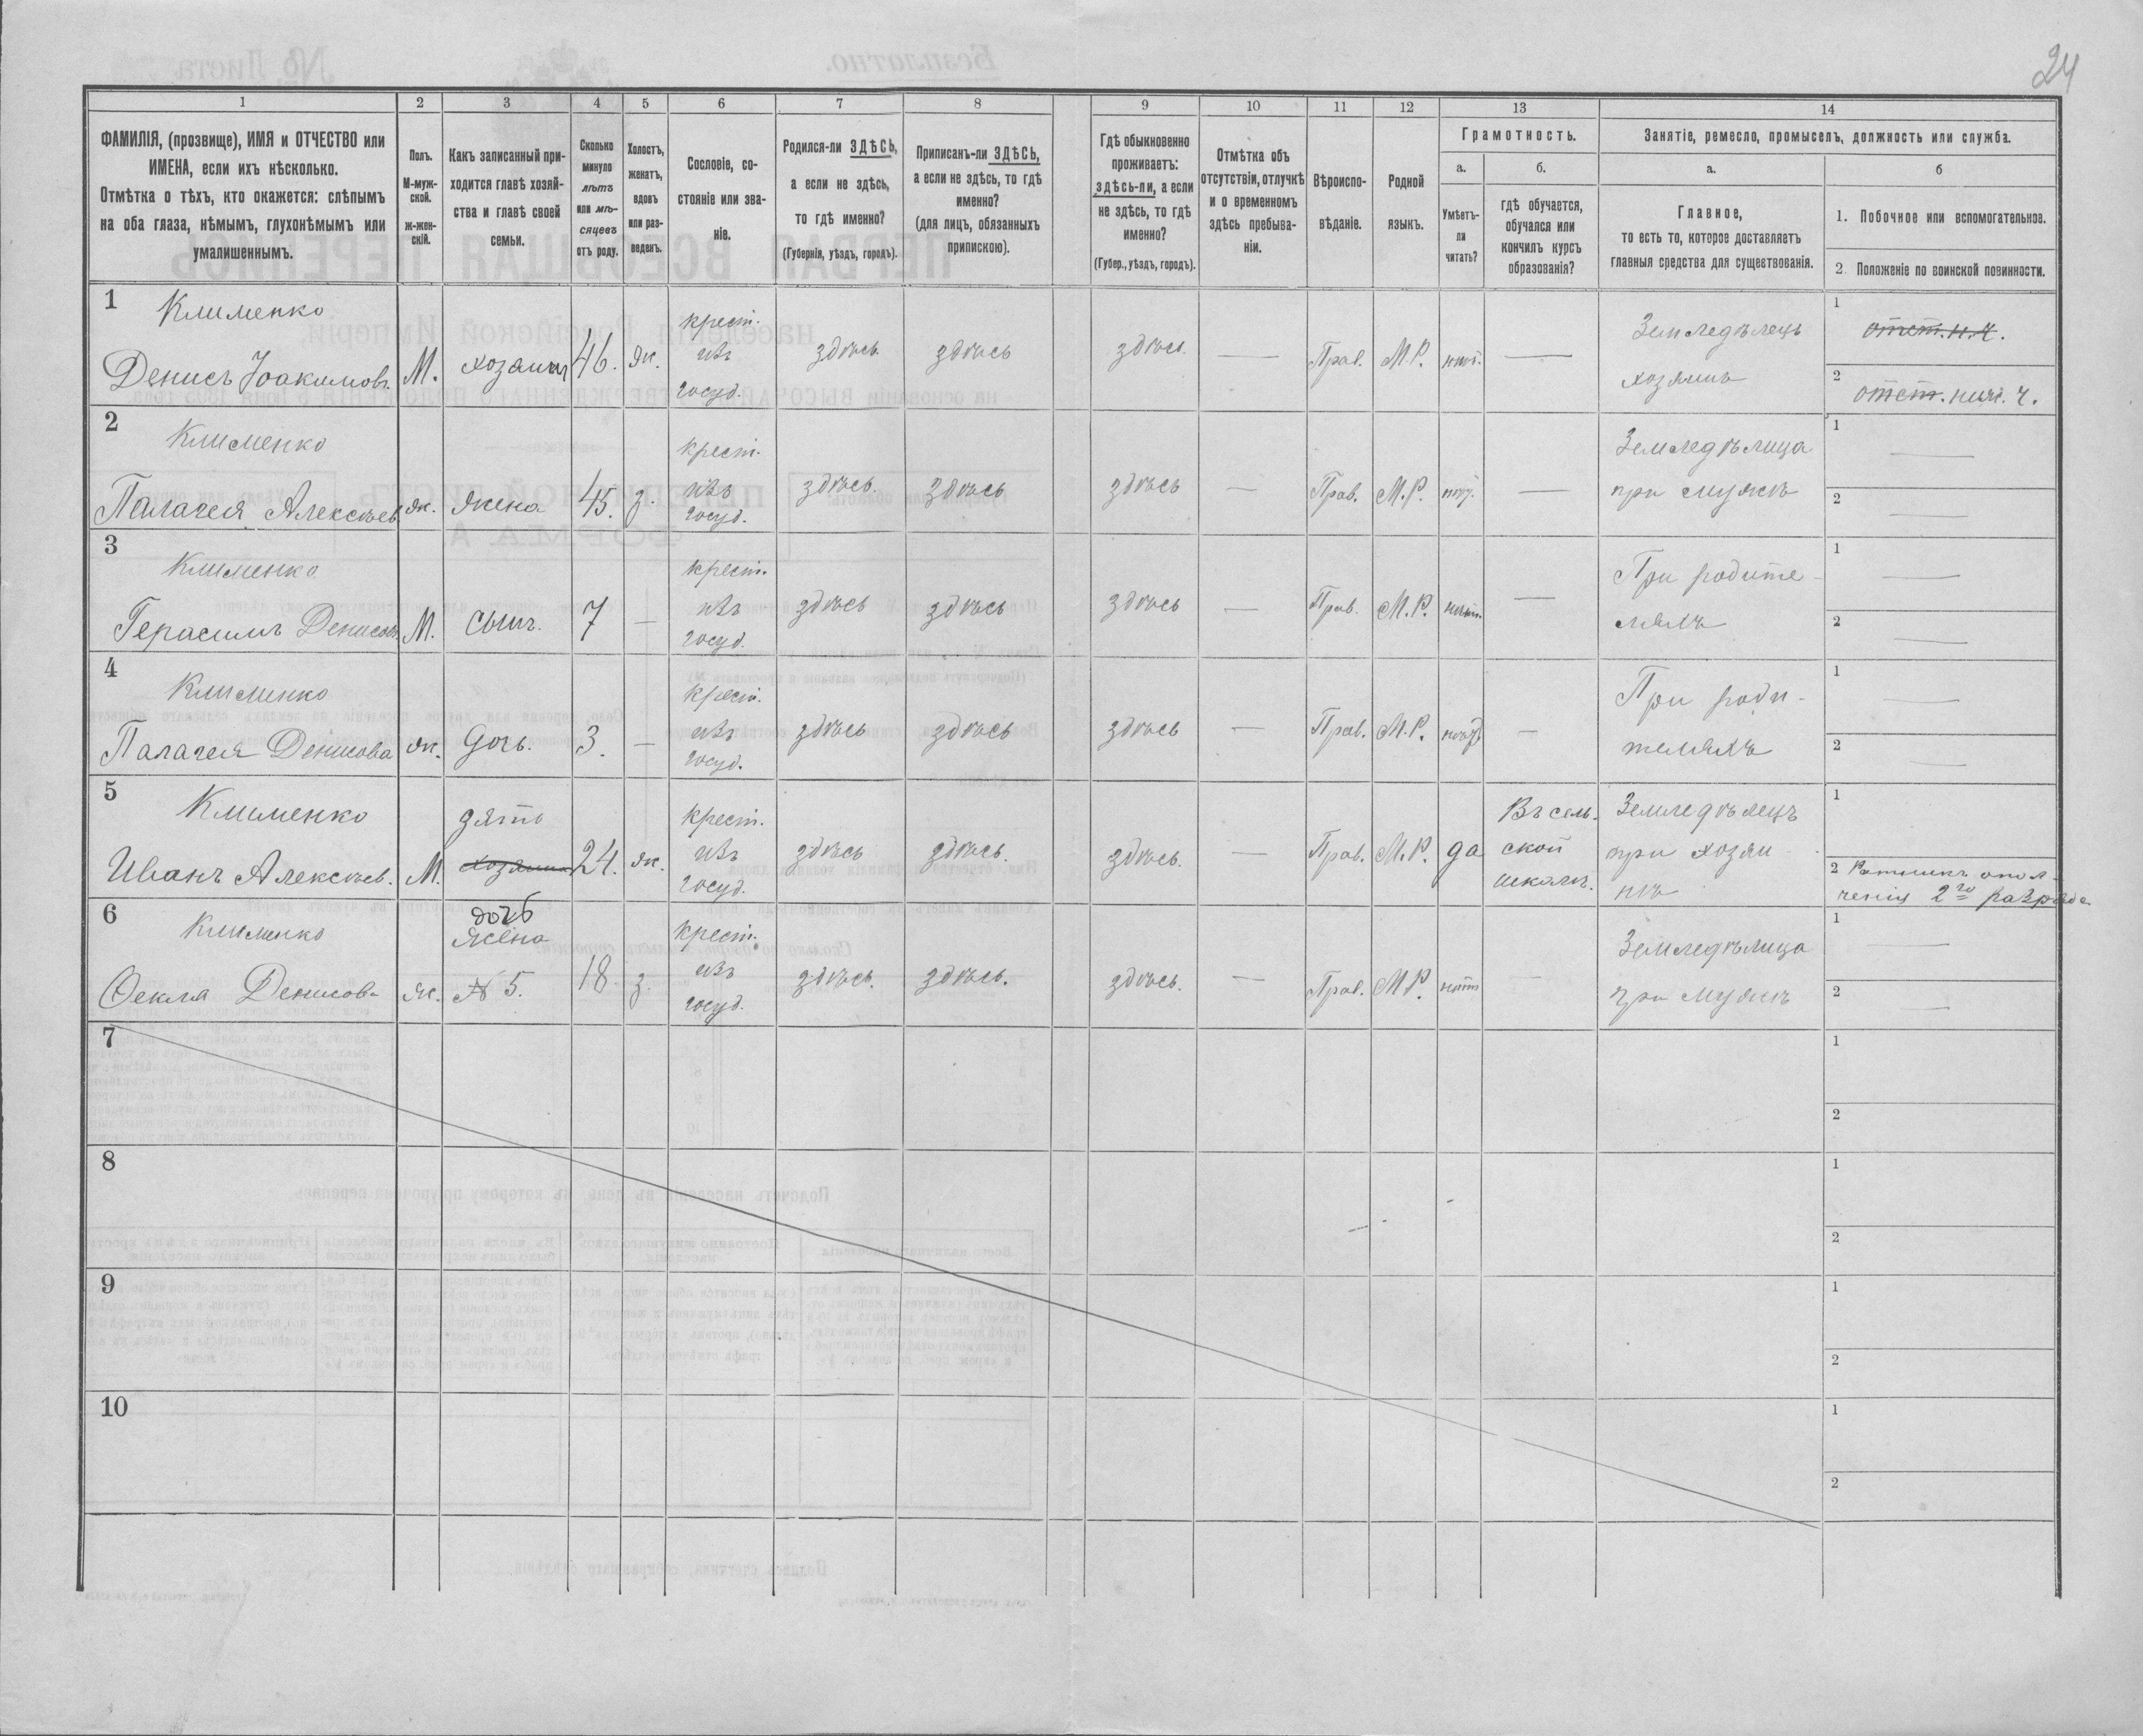 24
1 2 3 4 5 6 7 8 9 10 11 12 13 14
ФАМИЛІЯ, (прозвище), ИМЯ и ОТЧЕСТВО или
ИМЕНА, если ихъ нѣсколько.
Отмѣтка о тѣхъ, кто окажется: слѣпымъ
на оба глаза, нѣмымъ, глухонѣмымъ или
умалишеннымъ.
Полъ.
М-муж-
ской.
ж-жен-
скій.
Какъ записанный при-
ходится главѣ хозяй-
ства и главѣ своей
семьи.
Сколько
минуло
лѣтъ
или мѣ-
сяцевъ
отъ роду.
Холостъ,
женатъ,
вдовъ
или раз-
веденъ.
Сословіе, со-
стояніе или зва-
ніе.
Родился-ли ЗДѢСЬ,
а если не здѣсь,
то гдѣ именно?
(Губернія, уѣздъ, городъ).
Приписанъ-ли ЗДѢСЬ,
а если не здѣсь, то гдѣ
именно?
(для лицъ, обязанныхъ
припискою).
Гдѣ обыкновенно
проживаетъ:
здѣсь-ли, а если
не здѣсь, то гдѣ
именно?
(Губер., уѣздъ, городъ).
Отмѣтка объ
отсутствіи, отлучкѣ
и о временномъ
здѣсь пребыва-
ніи.
Вѣроиспо-
вѣданіе.
Родной
языкъ.
Грамотность.
а.
Умѣетъ-
ли
читать?
б.
гдѣ обучается,
обучался или
кончилъ курсъ
образованія?
Занятіе, ремесло, промыселъ, должность или служба.
а.
Главное,
то есть то, которое доставляетъ
главныя средства для существованія.
б
1. Побочное или вспомогательное.
2. Положеніе по воинской повинности.
1 Клименко
Денисъ Іоакимовъ.
М.
хозяинъ
46.
ж.
крест.
изъ
госуд.
здѣсь
здѣсь
здѣсь.
—
Прав.
М.Р.
нѣт.
—
Земледѣлецъ
хозяинъ
1 отст.н.ч.
2 отст. ниж. ч.
2 Клименко
Палагея Алексѣев.
ж.
жена
45.
з.
крест.
изъ
госуд.
здѣсь.
здѣсь
здѣсь
—
Прав.
М.Р.
нѣт.
—
Земледѣлица
при мужѣ
1 —
2 —
3 Клименко
Герасимъ Денисовъ
М.
сынъ.
7
—
крест.
изъ
госуд.
здѣсь
здѣсь
здѣсь
—
Прав.
М.Р.
нѣт.
—
При родите-
ляхъ
1 —
2 —
4 Клименко
Палагея Денисова
ж.
дочь.
3.
—
крест.
изъ
госуд.
здѣсь
здѣсь
здѣсь
—
Прав.
М.Р.
нѣтъ
—
При роди-
теляхъ
1 —
2 —
5 Клименко
Иванъ Алексѣев.
М.
зять
хозяинъ
24.
ж.
крест.
изъ
госуд.
здѣсь
здѣсь.
здѣсь.
—
Прав.
М.Р.
да
Въ сель-
ской
школѣ.
Земледѣлецъ
при хозяи-
нѣ
1
2 Ратникъ опол-
ченія 2го разряда
6 Клименко
Ѳекла Денисов-
ж.
дочь
жена
№ 5.
18.
з.
крест.
изъ
госуд.
здѣсь.
здѣсь.
здѣсь.
—
Прав.
М.Р.
нѣт
—
Земледѣлица
при мужѣ
1 —
2 —
7
1
2
8
1
2
9
1
2
10
1
2